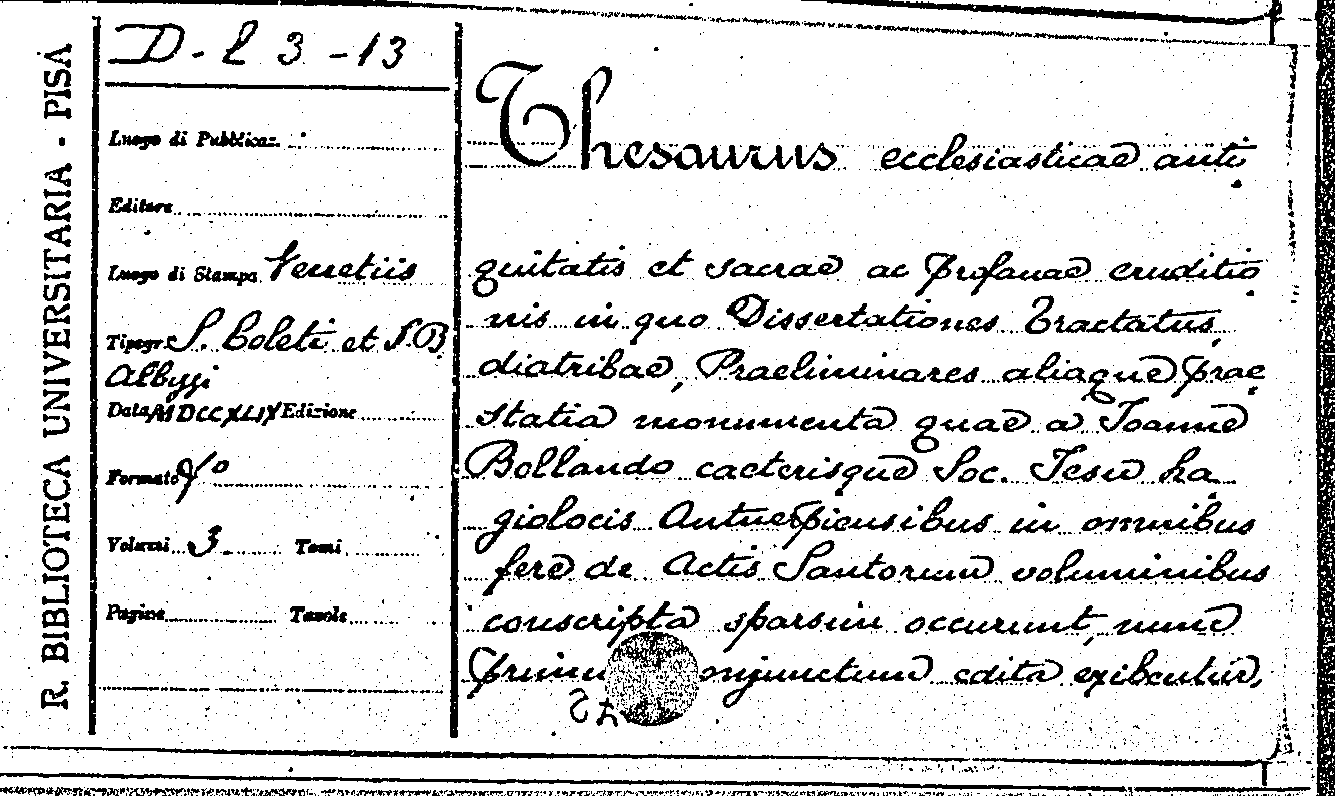 R. BIBLIOTECA UNIVERSITARIA - PISA
D - l 3 - 13
Luogo di Pubblicaz.
Editore
Luogo di Stampa Venetiis
Tipogr. S. Coleti et J. B.
Albrizzi
Data MDCCXLIX Edizione
Formato fº
Volumi 3. Tomi
Pagine Tavole
Thesaurus ecclesiasticae anti
quitatis et sacrae ac profanae eruditio
nis in quo Dissertationes Tractatus,
diatribae, Praeliminares aliaque prae
statia monumenta quae a Joanne
Bollando caeterisque Soc. Jesu ha
giolocis Antuerpiensibus in omnibus
fere de Actis Santorum voluminibus
conscripta sparsim occurunt, nunc
primu onjunctum edita exibentur,